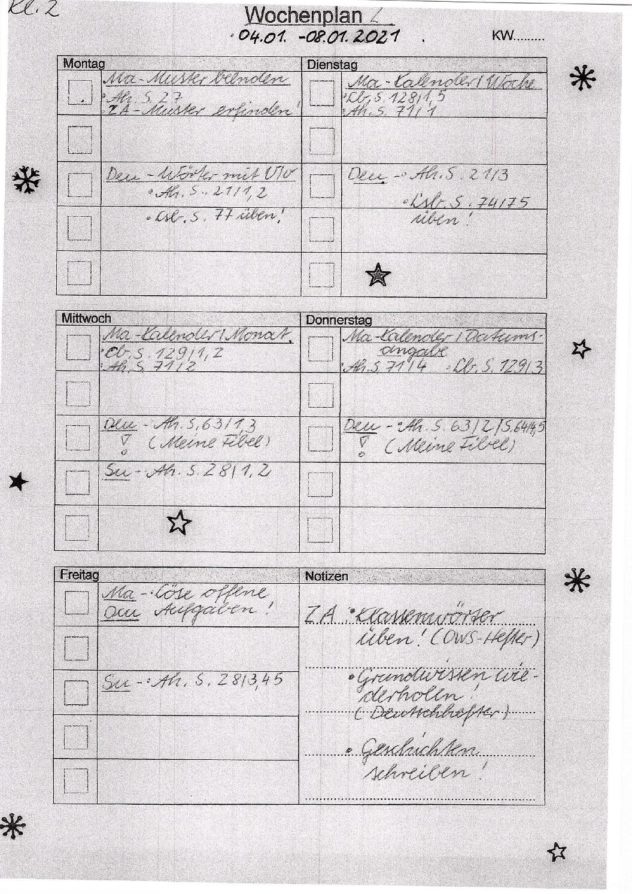 Kl. 2
Wochenplan
04.01. - 08.01.2021
KW.........
Montag
Ma - Muster
• Ah. S. 27
• ZA - Muster erfinden!
Deu - Wörter mit V/v
• Ah. S. 21/1,2
• Lsb. S. 77 üben!
Dienstag
Ma - Kalender/Woche
• Lb. S. 128/1,5
• Ah. S. 71/1
Deu - • Ah. S. 21/3
• Lsb. S. 74/75
üben!
Mittwoch
Ma - Kalender/Monat
• Lb. S. 129/1,2
• Ah. S. 71/2
Deu - Ah. S. 63/1,3
! (Meine Fibel)
Su - • Ah. S. 28/1,2
Donnerstag
Ma - Kalender/Datums-
angabe
• Ah. S. 71/4 • Lb. S. 129/3
Deu - • Ah. S. 63/2/S.64/4,5
! (Meine Fibel)
Freitag
Ma - • Löse offene
Deu Aufgaben!
Su - • Ah. S. 28/3,4,5
Notizen
ZA • Klassenwörter
üben! (OWS-Hefter)
• Grundwissen wie-
derholen!
(Deutschhefter)
• Geschichten
schreiben!